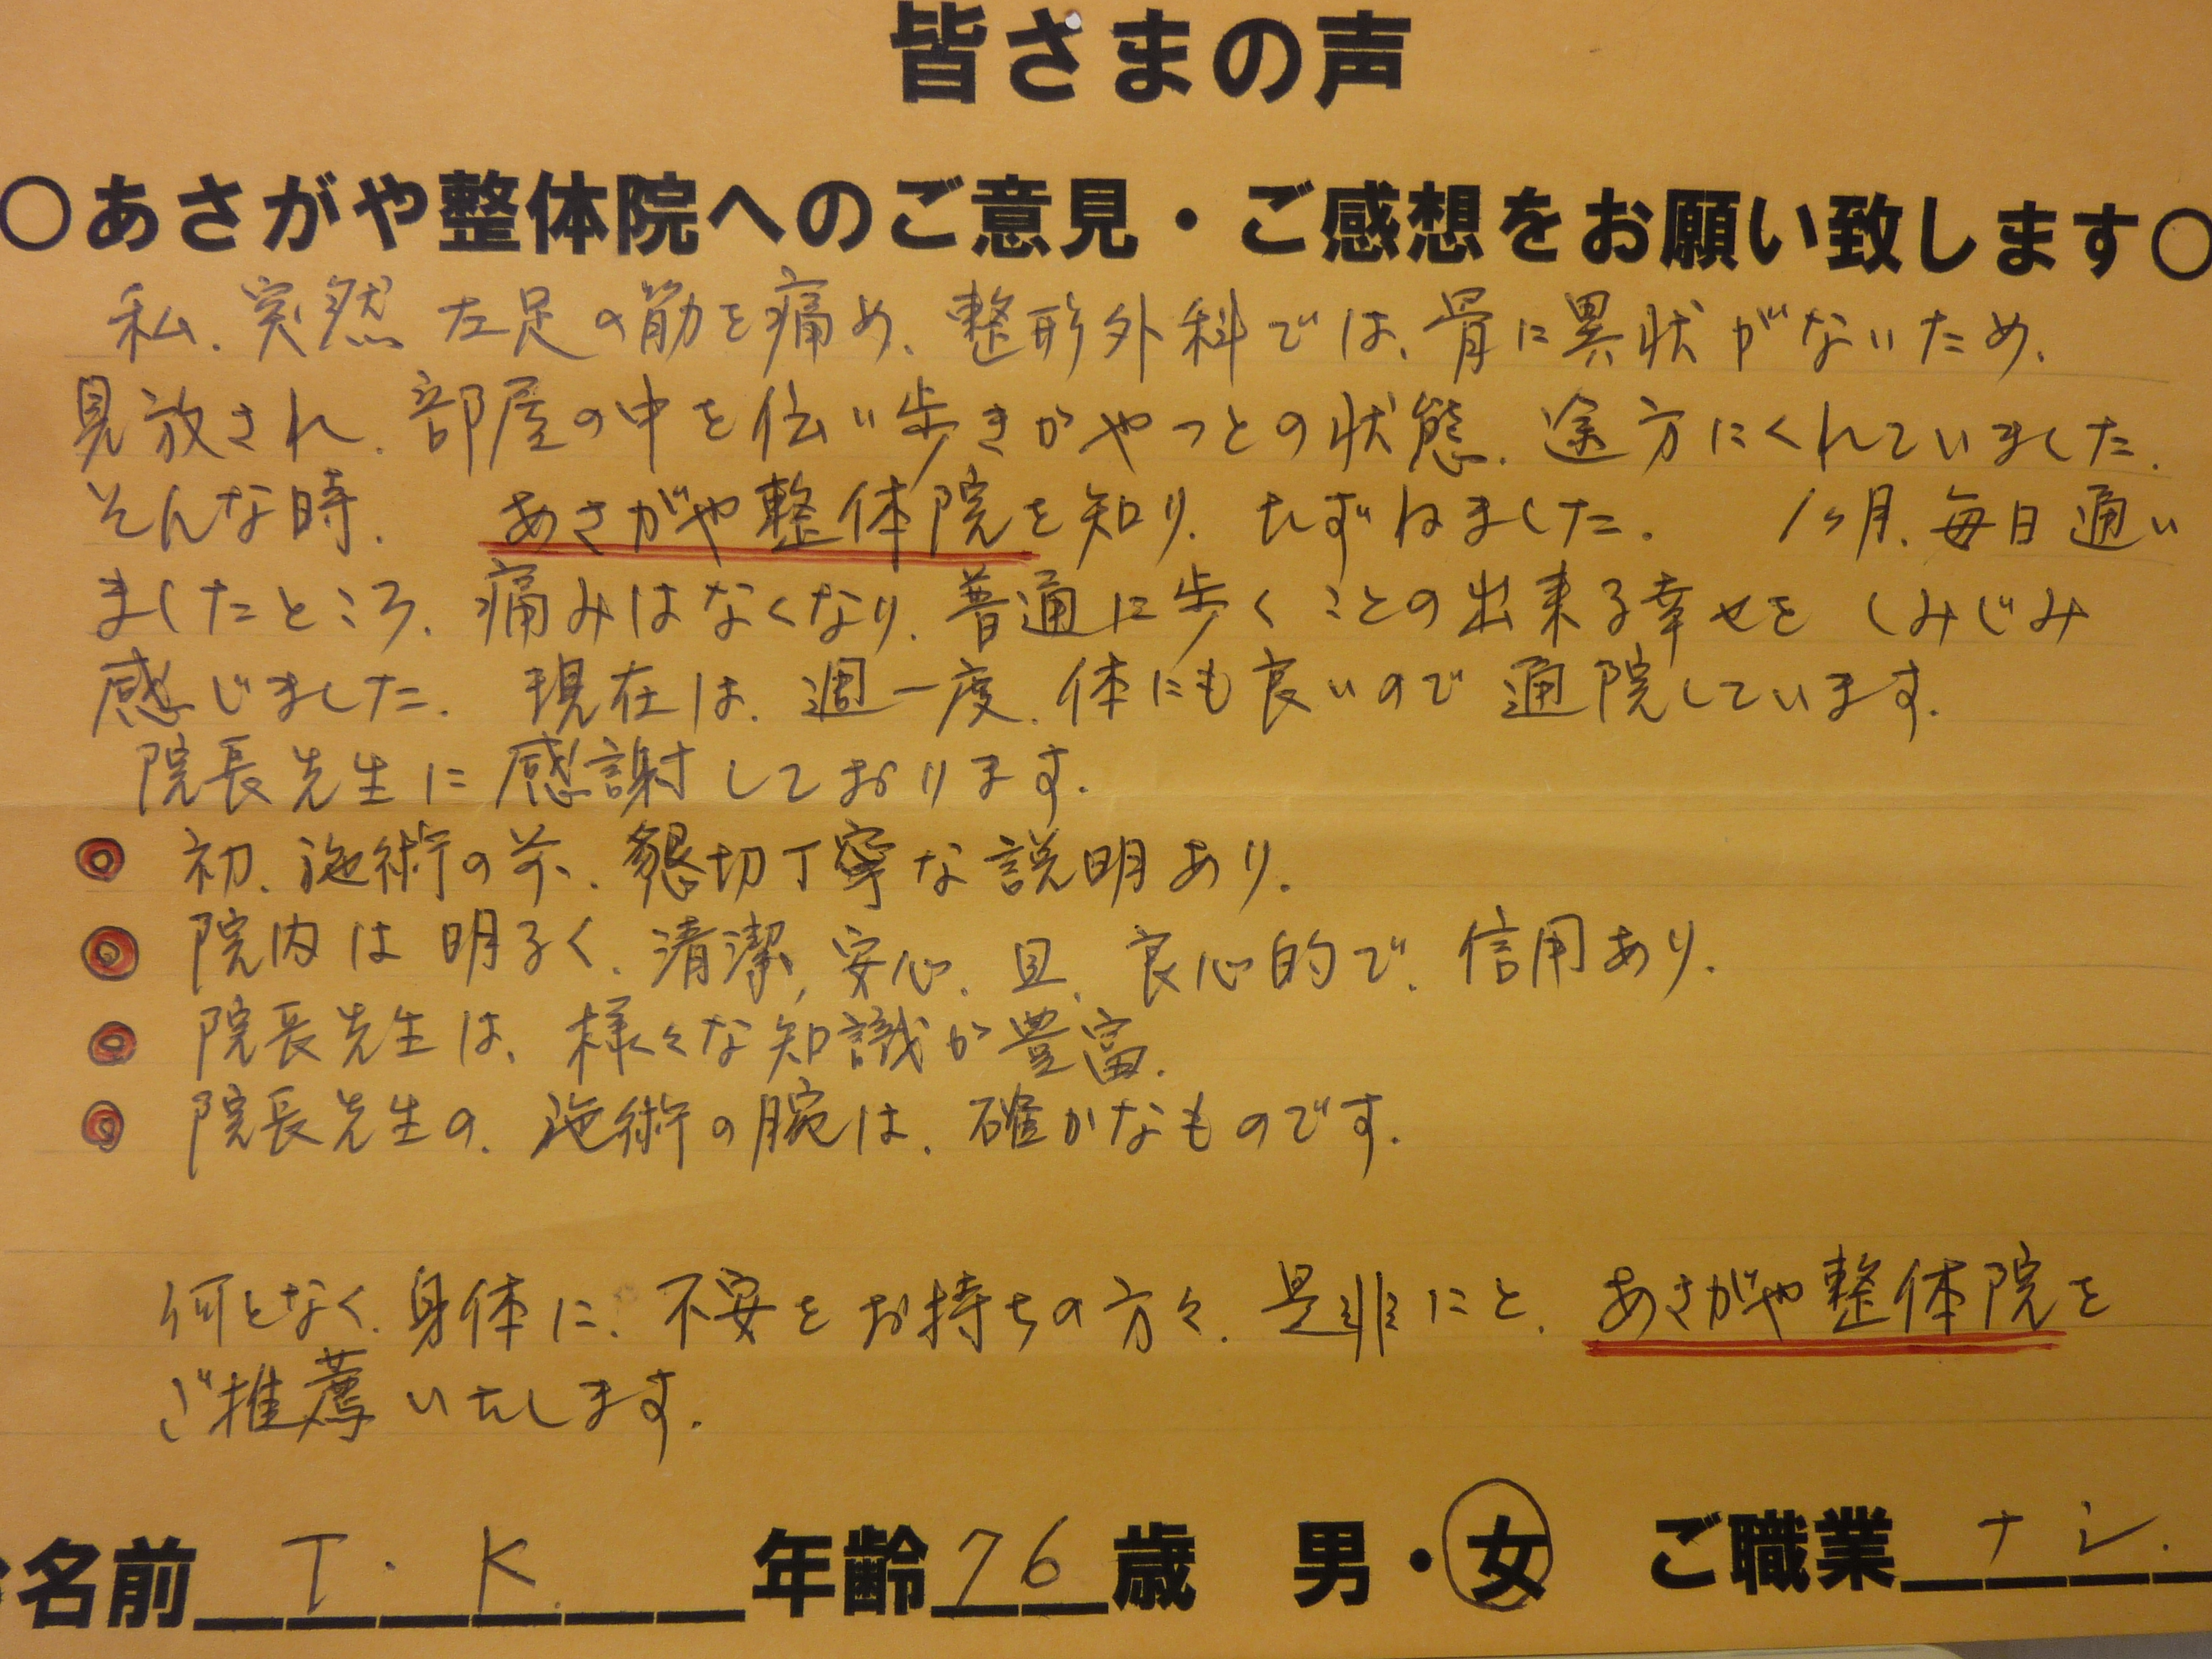 皆さまの声
○あさがや整体院へのご意見・ご感想をお願い致します○
私、突然 左足の筋を痛め、整形外科では、骨に異状がないため、
見放され、部屋の中を伝い歩きがやっとの状態、途方にくれていました。
そんな時、あさがや整体院を知り、たずねました。 1ヶ月、毎日通い
ましたところ、痛みはなくなり、普通に歩くことの出来る幸せを しみじみ
感じました。 現在は、週一度、体にも良いので 通院しています。
院長先生に 感謝しております。
◎ 初、施術の前、懇切丁寧な説明あり。
◎ 院内は 明るく、清潔、安心、且、良心的で、信用あり。
◎ 院長先生は、様々な知識が豊富。
◎ 院長先生の、施術の腕は、確かなものです。
何となく、身体に、不安をお持ちの方々、是非にと、あさがや整体院を
ご推薦いたします。
名前 T.K 年齢 76 歳 男・女 ご職業 ナシ.